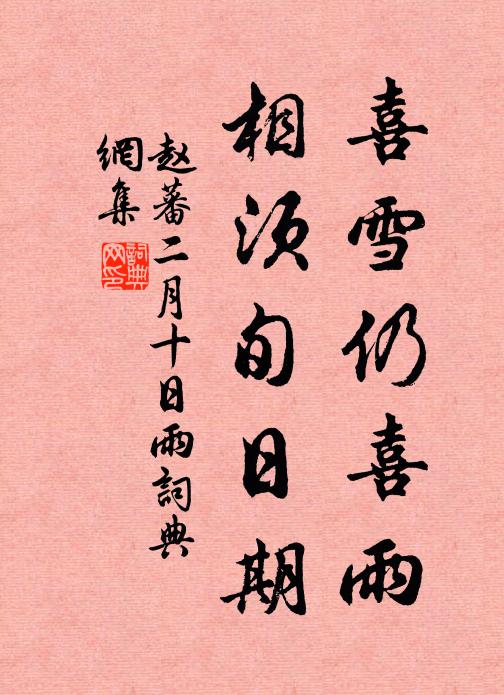 喜雪仍喜雨
相须旬日期
赵蕃二月十日雨詞典
網集
詞典網印